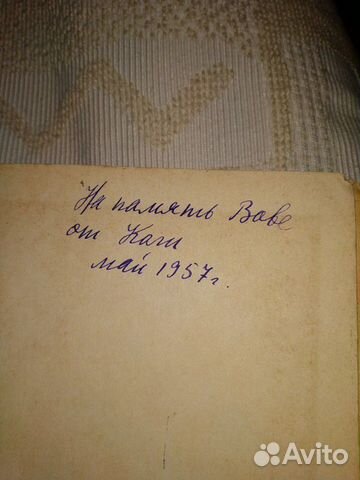 На память Вове
от Кати
май 1957 г.
Avito